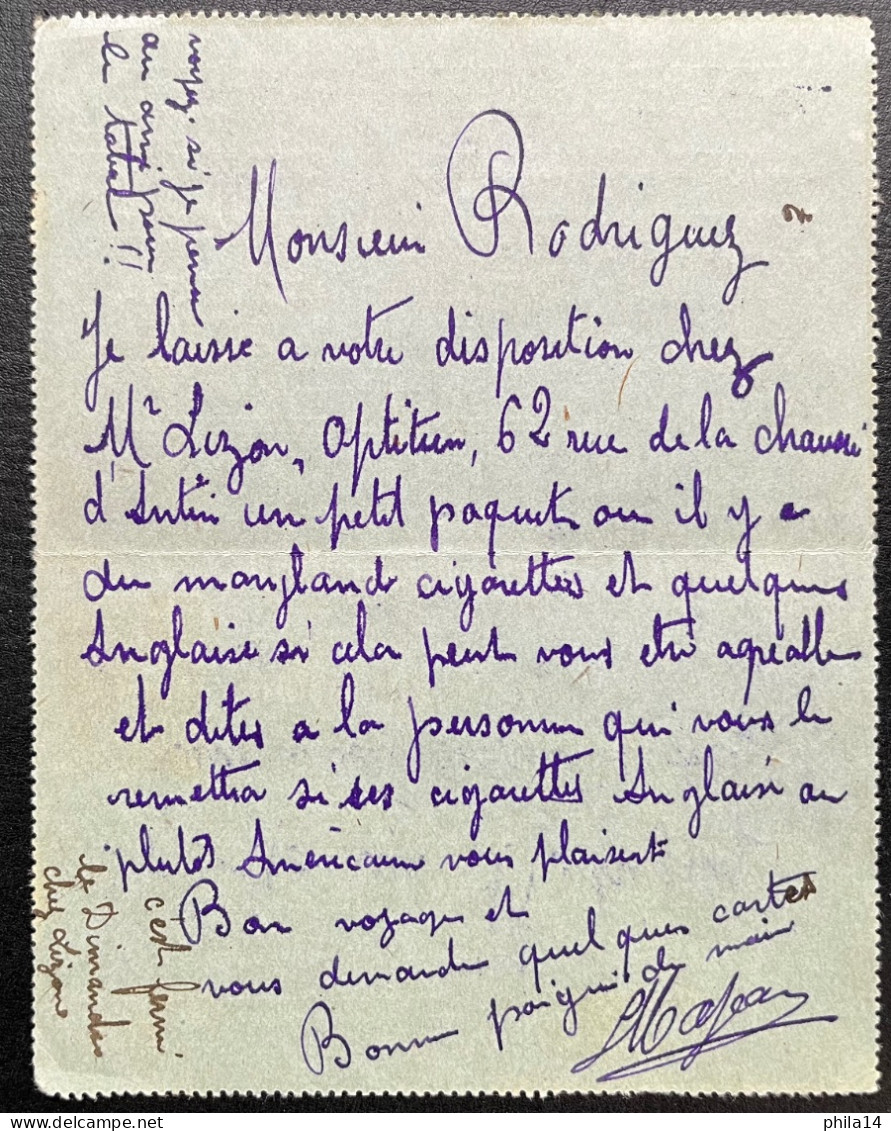 voyez si je pense
au ami pour
le tabac !!
Monsieur Rodriguez
Je laisse a votre disposition chez
Mr Lizon, Optitien, 62 rue de la chaussé
d'Antin un petit paquet ou il y a
du maryland cigarettes et quelques
Anglaise si cela peut vous etre agreable
et dites a la personne qui vous le
remettra si ses cigarettes Anglaise ou
plutot Américaine vous plaisent
Bon voyage et
vous demande quelques cartes
Bonne poignée de main
c'est fermé
le Dimanche
chez Lizon
delcampe.net
phila14